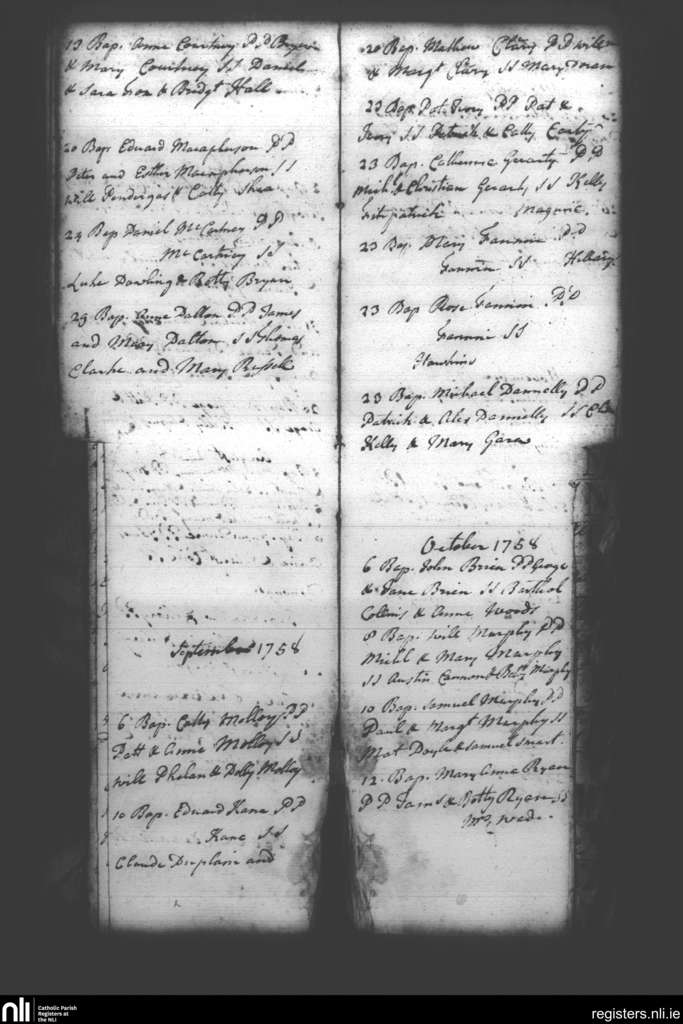 13 Bap. Anne Courtney PP Bryan
& Mary Courtney SS Daniel
& Sara & Bridgt Hall
20 Bap Edward Macapherson PP
Peter and Esther Macapherson SS
Will Pendergast & Catty Shea
24 Bap Daniel McCartney PP
McCartney SS
Luke Dowling & Betty Bryan
29 Bap. Anne Dalton PP James
and Mary Dalton SS Thomas
Clarke and Mary Russell
September 1758
6 Bap. Catty Molloy PP
Patt & Anne Molloy SS
Will Phelan & Dolly Molloy
10 Bap. Edward Kane PP
Kane SS
Claude Duplain and
20 Bap. Mathew Clary PP Will
& Margt Clary SS Mary Doran
22 Bap Pat Ivory PP Pat &
Ivory SS Patrick & Catty
23 Bap. Catherine Gerarty PP
Michl & Christian Gerarty SS Kelly
Fitzpatrick Maguire.
23 Bap. Mary Fannin PP
Fannin SS
23 Bap Rose Fannin PP
Fannin SS
Hawkins
23 Bap. Michael Dannelly PP
Patrick & Ales Dannelly SS
Kelly & Mary Gara
October 1758
6 Bap. John Brien PP George
& Jane Brien SS Barthol
Collins & Anne Woods
8 Bap. Will Murphy PP
Michl & Mary Murphy
SS Austin Cannon & Betty Murphy
10 Bap. Samuel Murphy PP
Paul & Margt Murphy SS
Mat Doyle & Samuel Smart.
12. Bap. Mary Anne Ryan
PP James & Betty Ryan SS
nli
Catholic Parish
Registers at
the NLI
registers.nli.ie